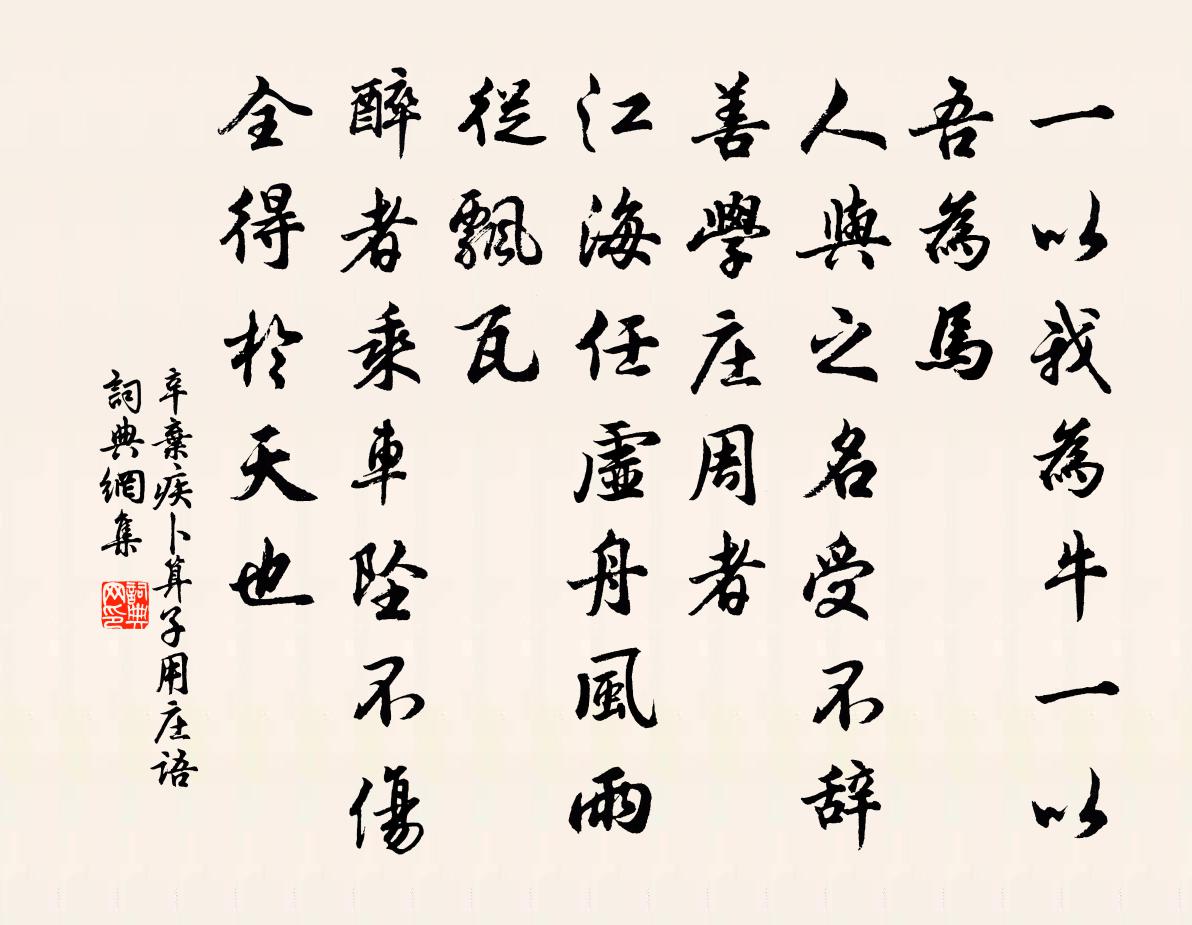 一以我為牛一以
吾為馬
人與之名受不辞
善學庄周者
江海任虛舟風雨
從飄瓦
醉者乘車墜不傷
全得於天也
辛棄疾卜算子用庄语
詞典網集
詞典
网印